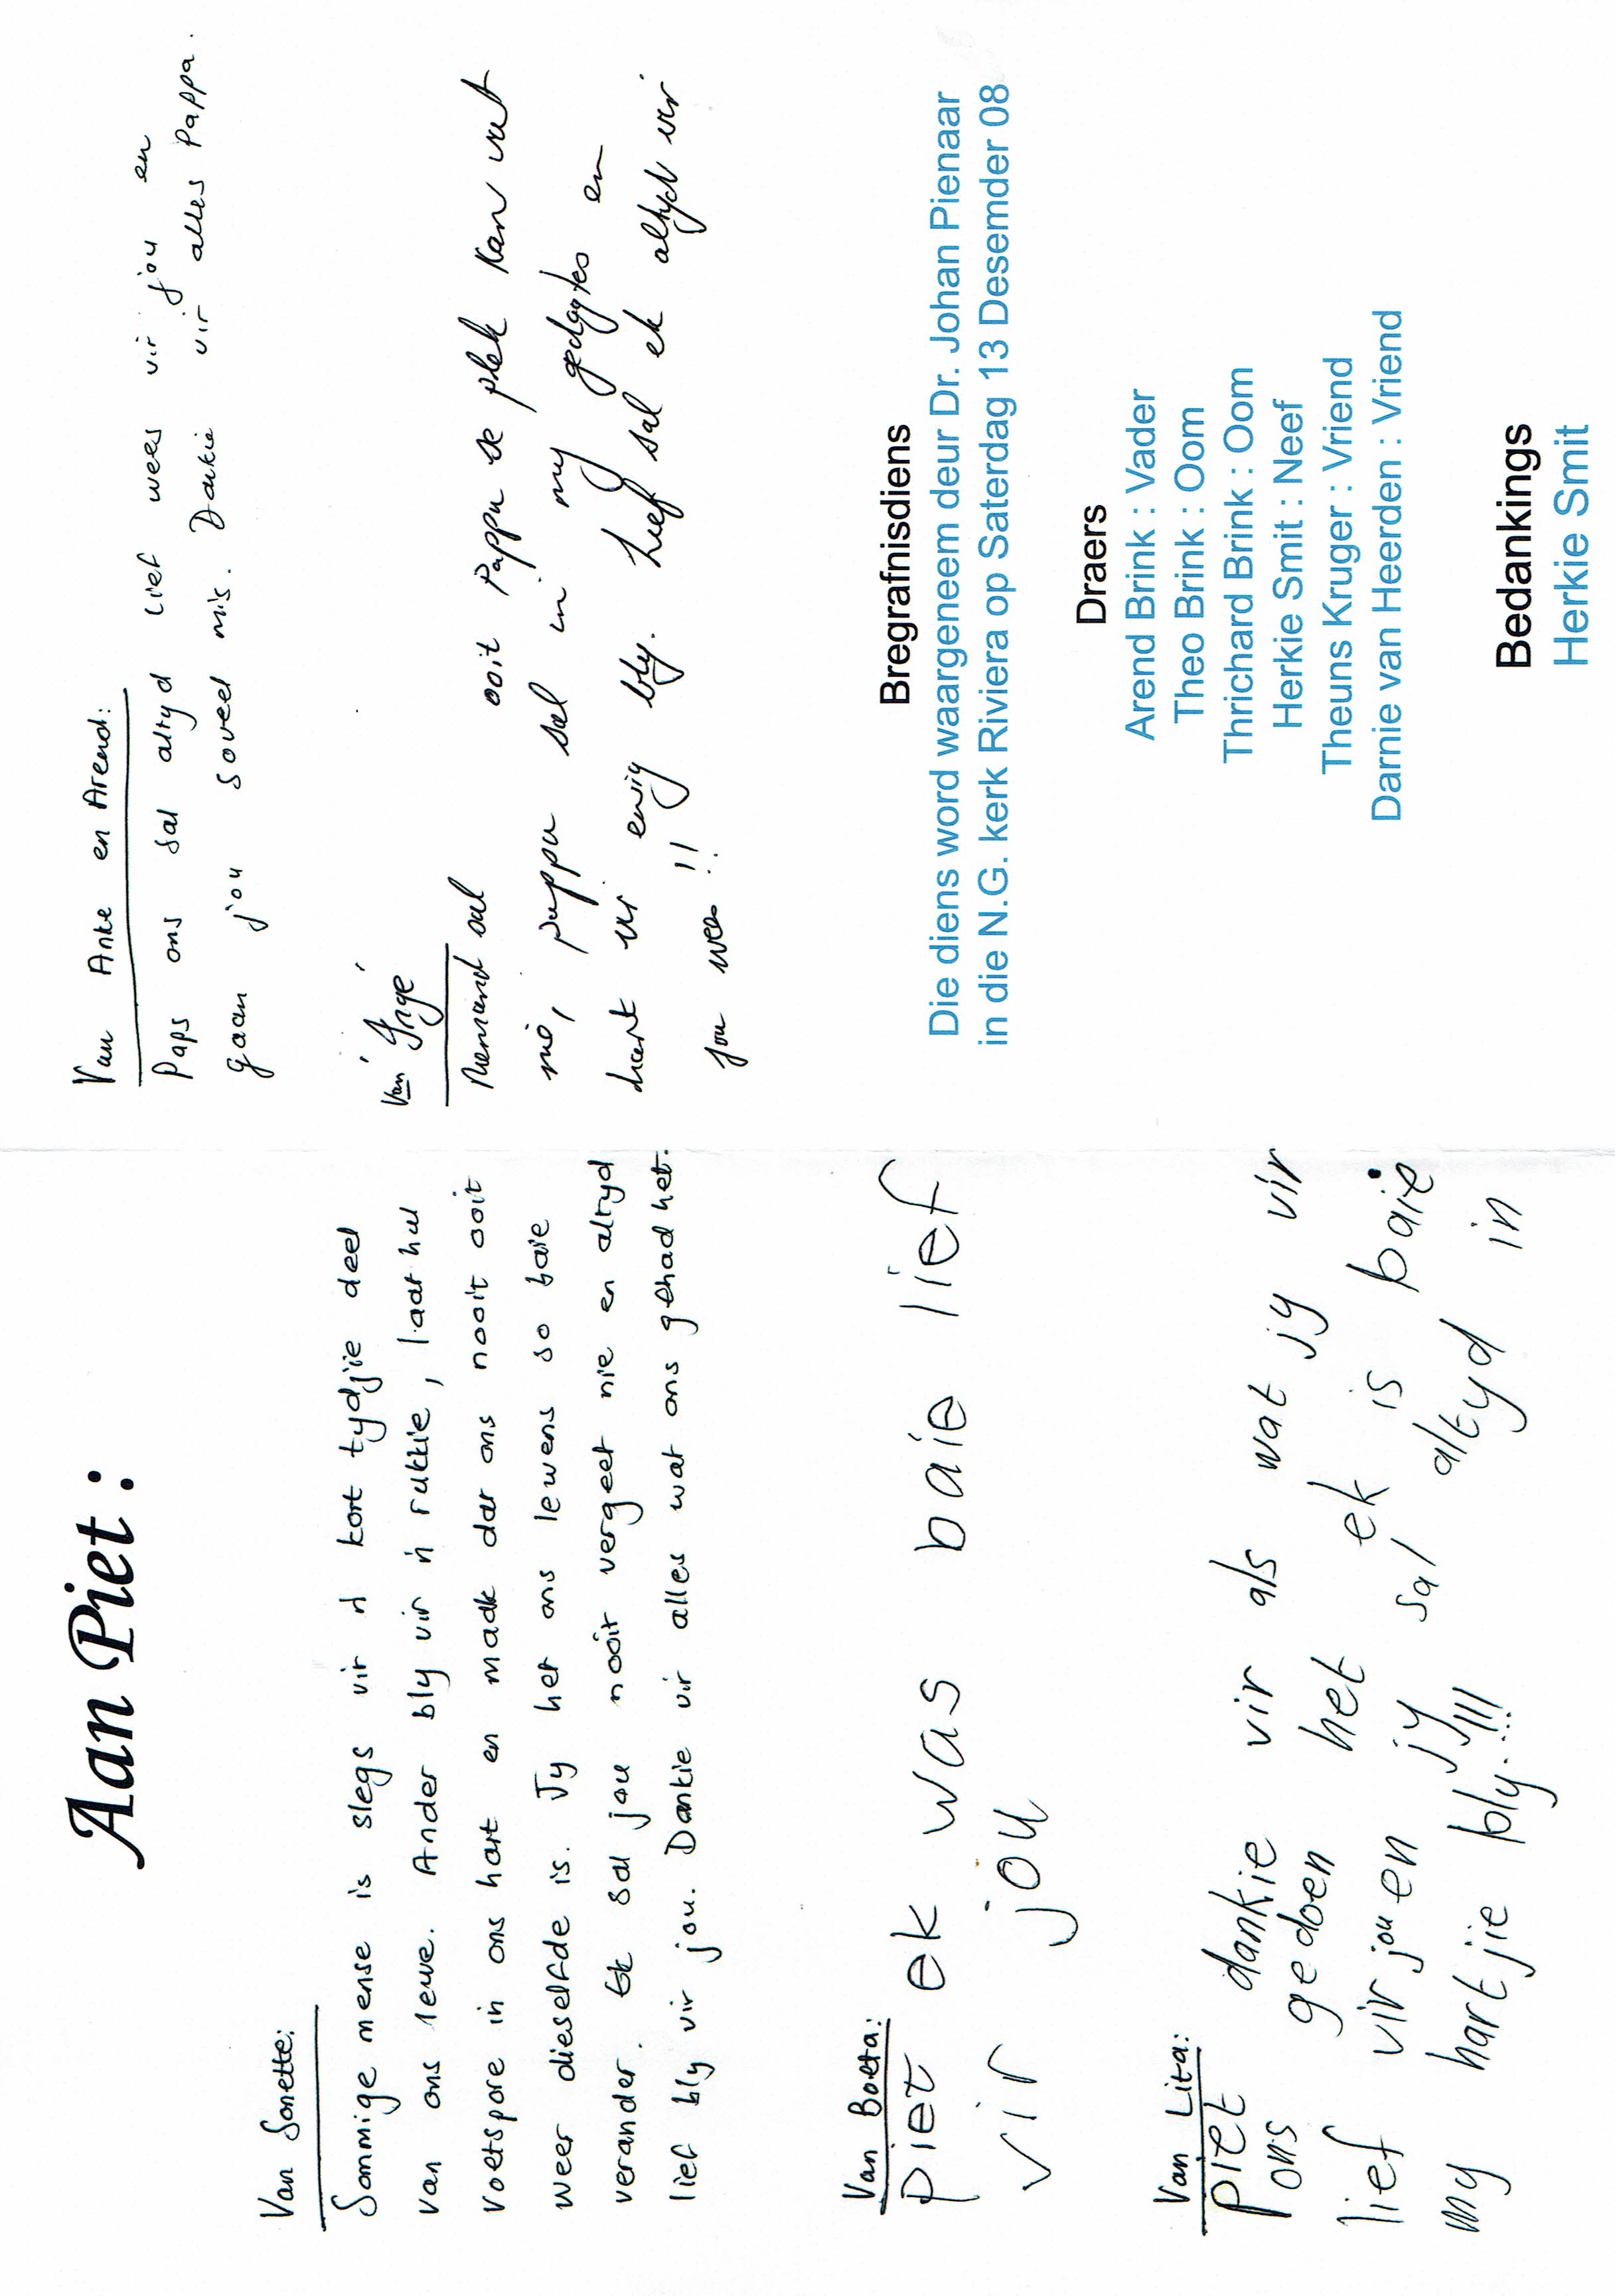 Aan Piet :
Van Sonette:
Sommige mense is slegs vir 'n kort tydjie deel
van ons lewe. Ander bly vir 'n rukkie, laat hul
voetspore in ons hart en maak dat ons nooit ooit
weer dieselfde is. Jy het ons lewens so baie
verander. Ek sal jou nooit vergeet nie en altyd
lief bly vir jou. Dankie vir alles wat ons gehad het.
Van Boeta:
Piet ek was baie lief
vir jou
Van Lita:
Piet dankie vir als wat jy vir
ons gedoen het ek is baie
lief vir jou en jy sal altyd in
my hartjie bly!!!
Van Anke en Arend:
Paps ons sal altyd lief wees vir jou en
gaan jou soveel mis. Dankie vir alles Pappa.
Van Ingé
Niemand sal ooit Pappa se plek kan vat
nie, pappa sal in my gedagtes en
hart vir ewig bly. Lief sal ek altyd vir
jou wees!!
Bregrafnisdiens
Die diens word waargeneem deur Dr. Johan Pienaar
in die N.G. kerk Riviera op Saterdag 13 Desemder 08
Draers
Arend Brink : Vader
Theo Brink : Oom
Thrichard Brink : Oom
Herkie Smit : Neef
Theuns Kruger : Vriend
Darnie van Heerden : Vriend
Bedankings
Herkie Smit